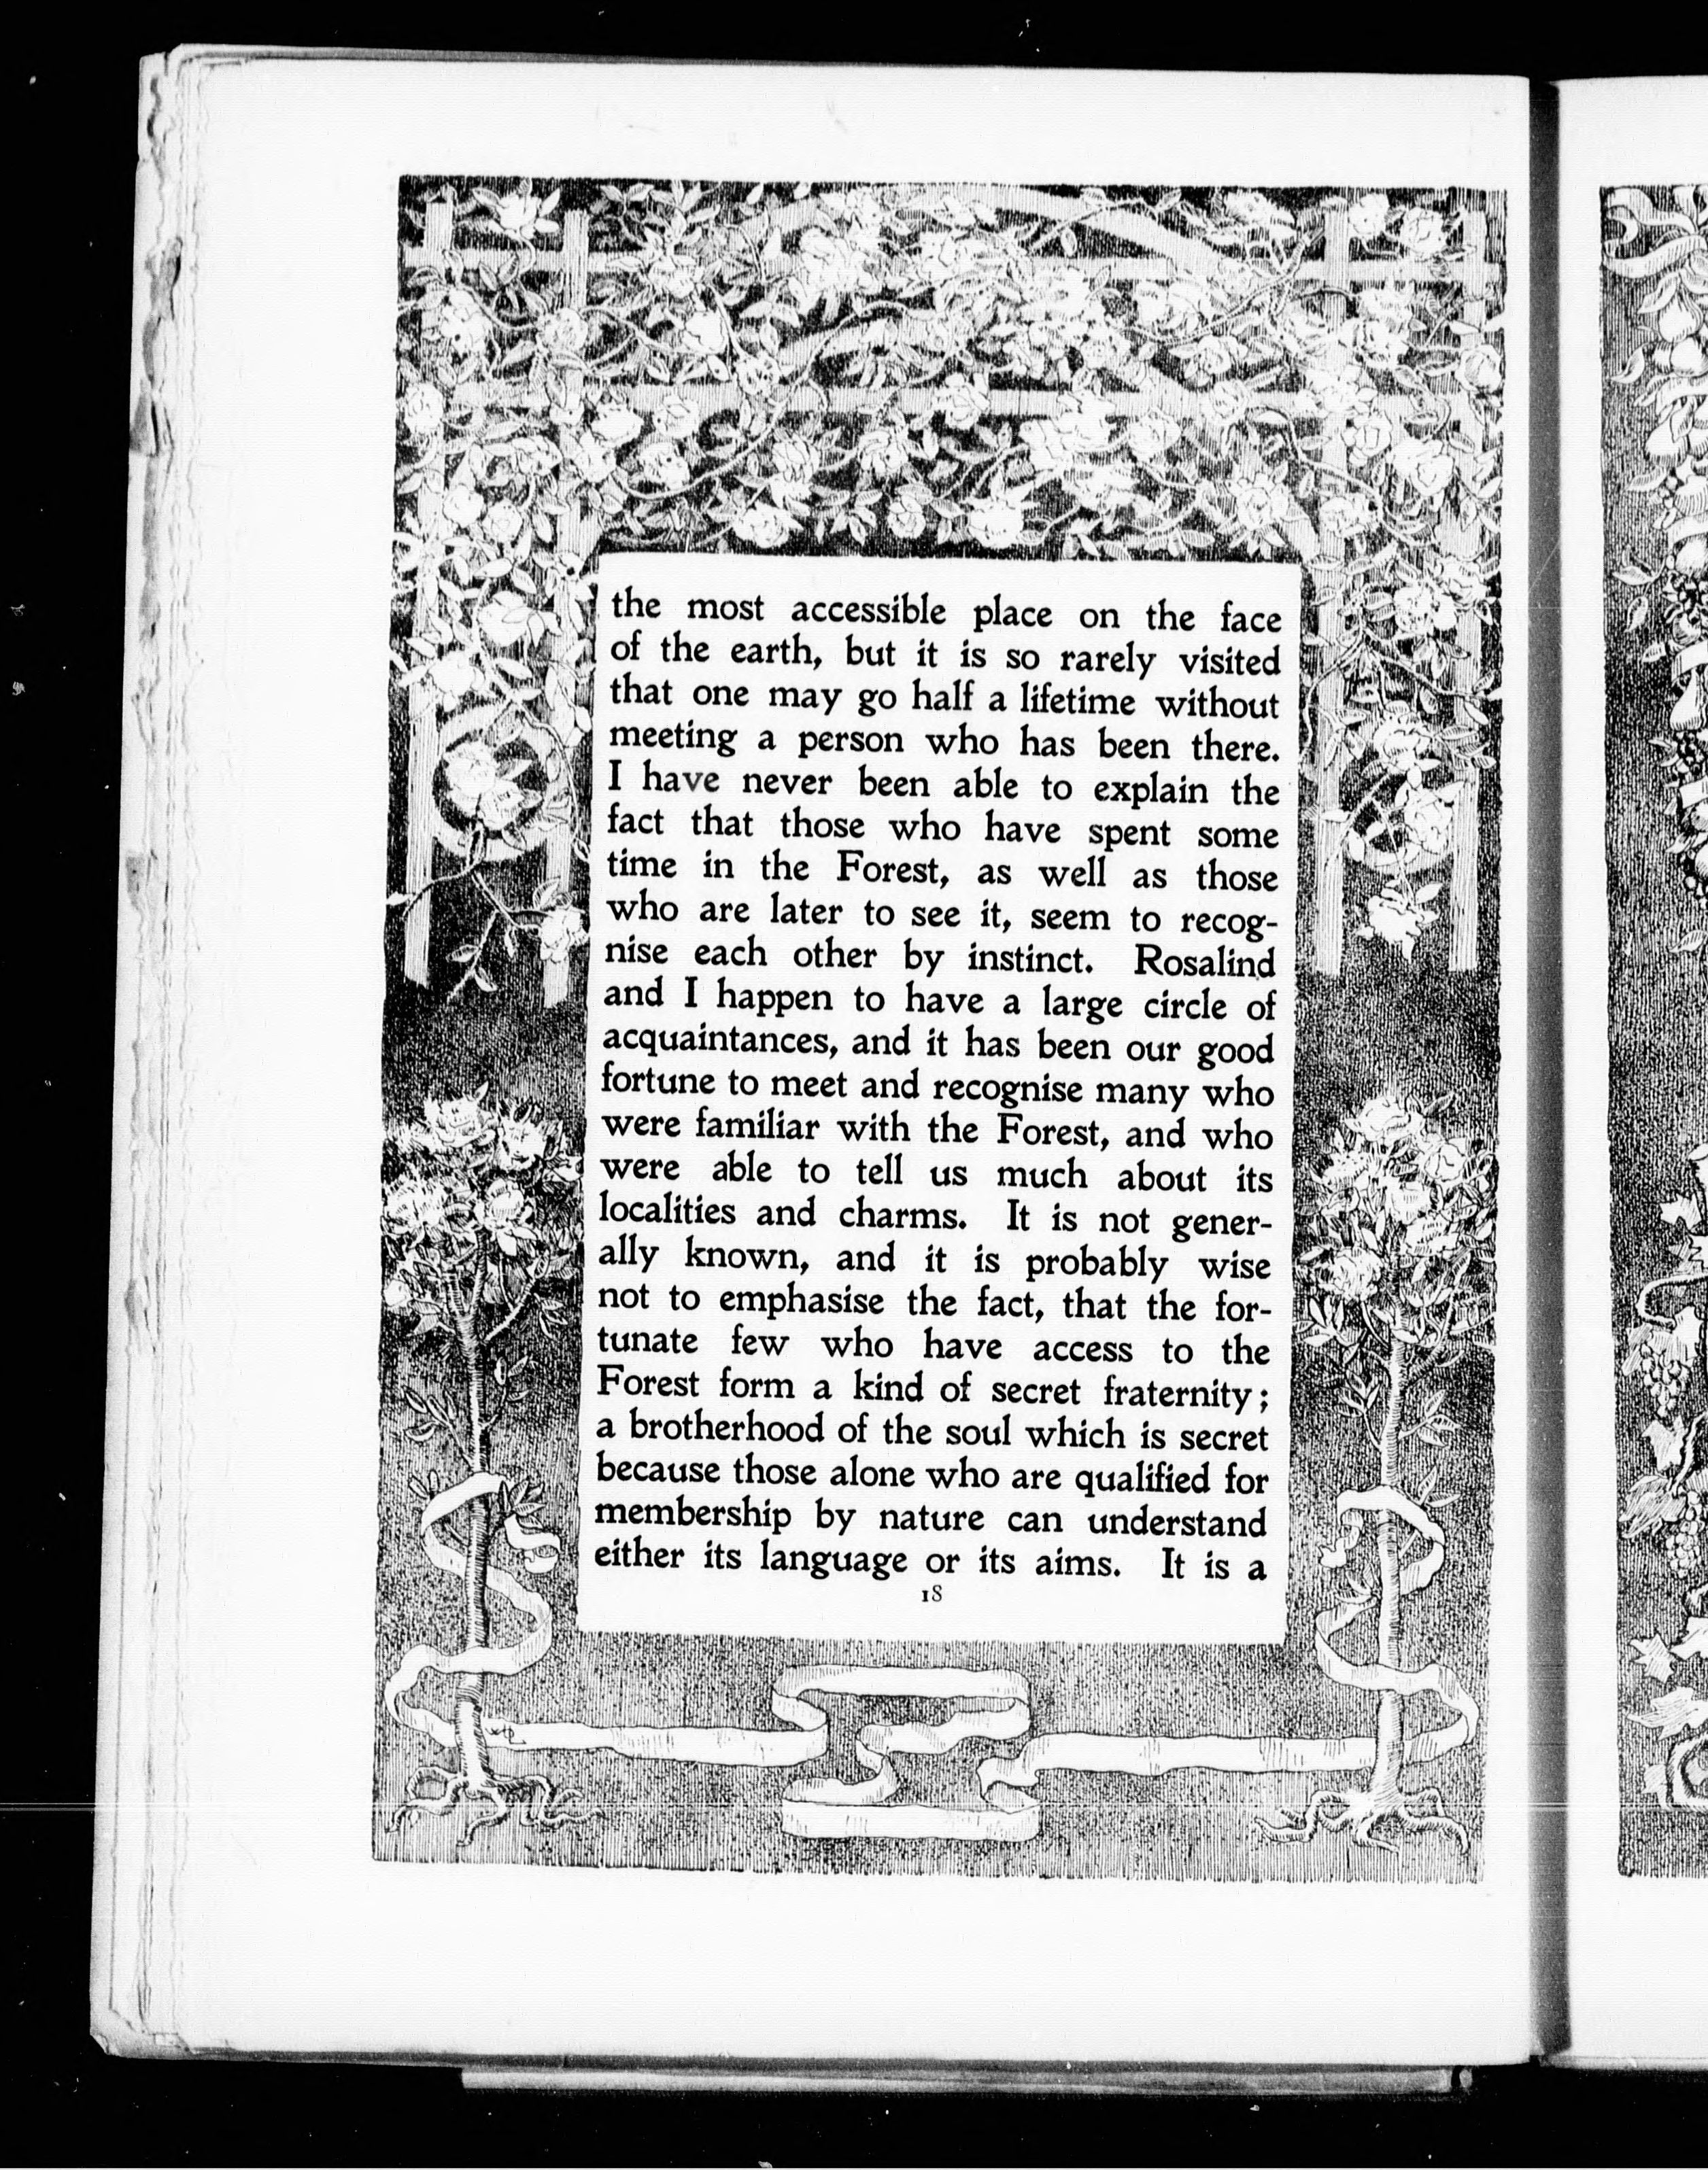 the most accessible place on the face
of the earth, but it is so rarely visited
that one may go half a lifetime without
meeting a person who has been there.
I have never been able to explain the
fact that those who have spent some
time in the Forest, as well as those
who are later to see it, seem to recog-
nise each other by instinct. Rosalind
and I happen to have a large circle of
acquaintances, and it has been our good
fortune to meet and recognise many who
were familiar with the Forest, and who
were able to tell us much about its
localities and charms. It is not gener-
ally known, and it is probably wise
not to emphasise the fact, that the for-
tunate few who have access to the
Forest form a kind of secret fraternity;
a brotherhood of the soul which is secret
because those alone who are qualified for
membership by nature can understand
either its language or its aims. It is a
18